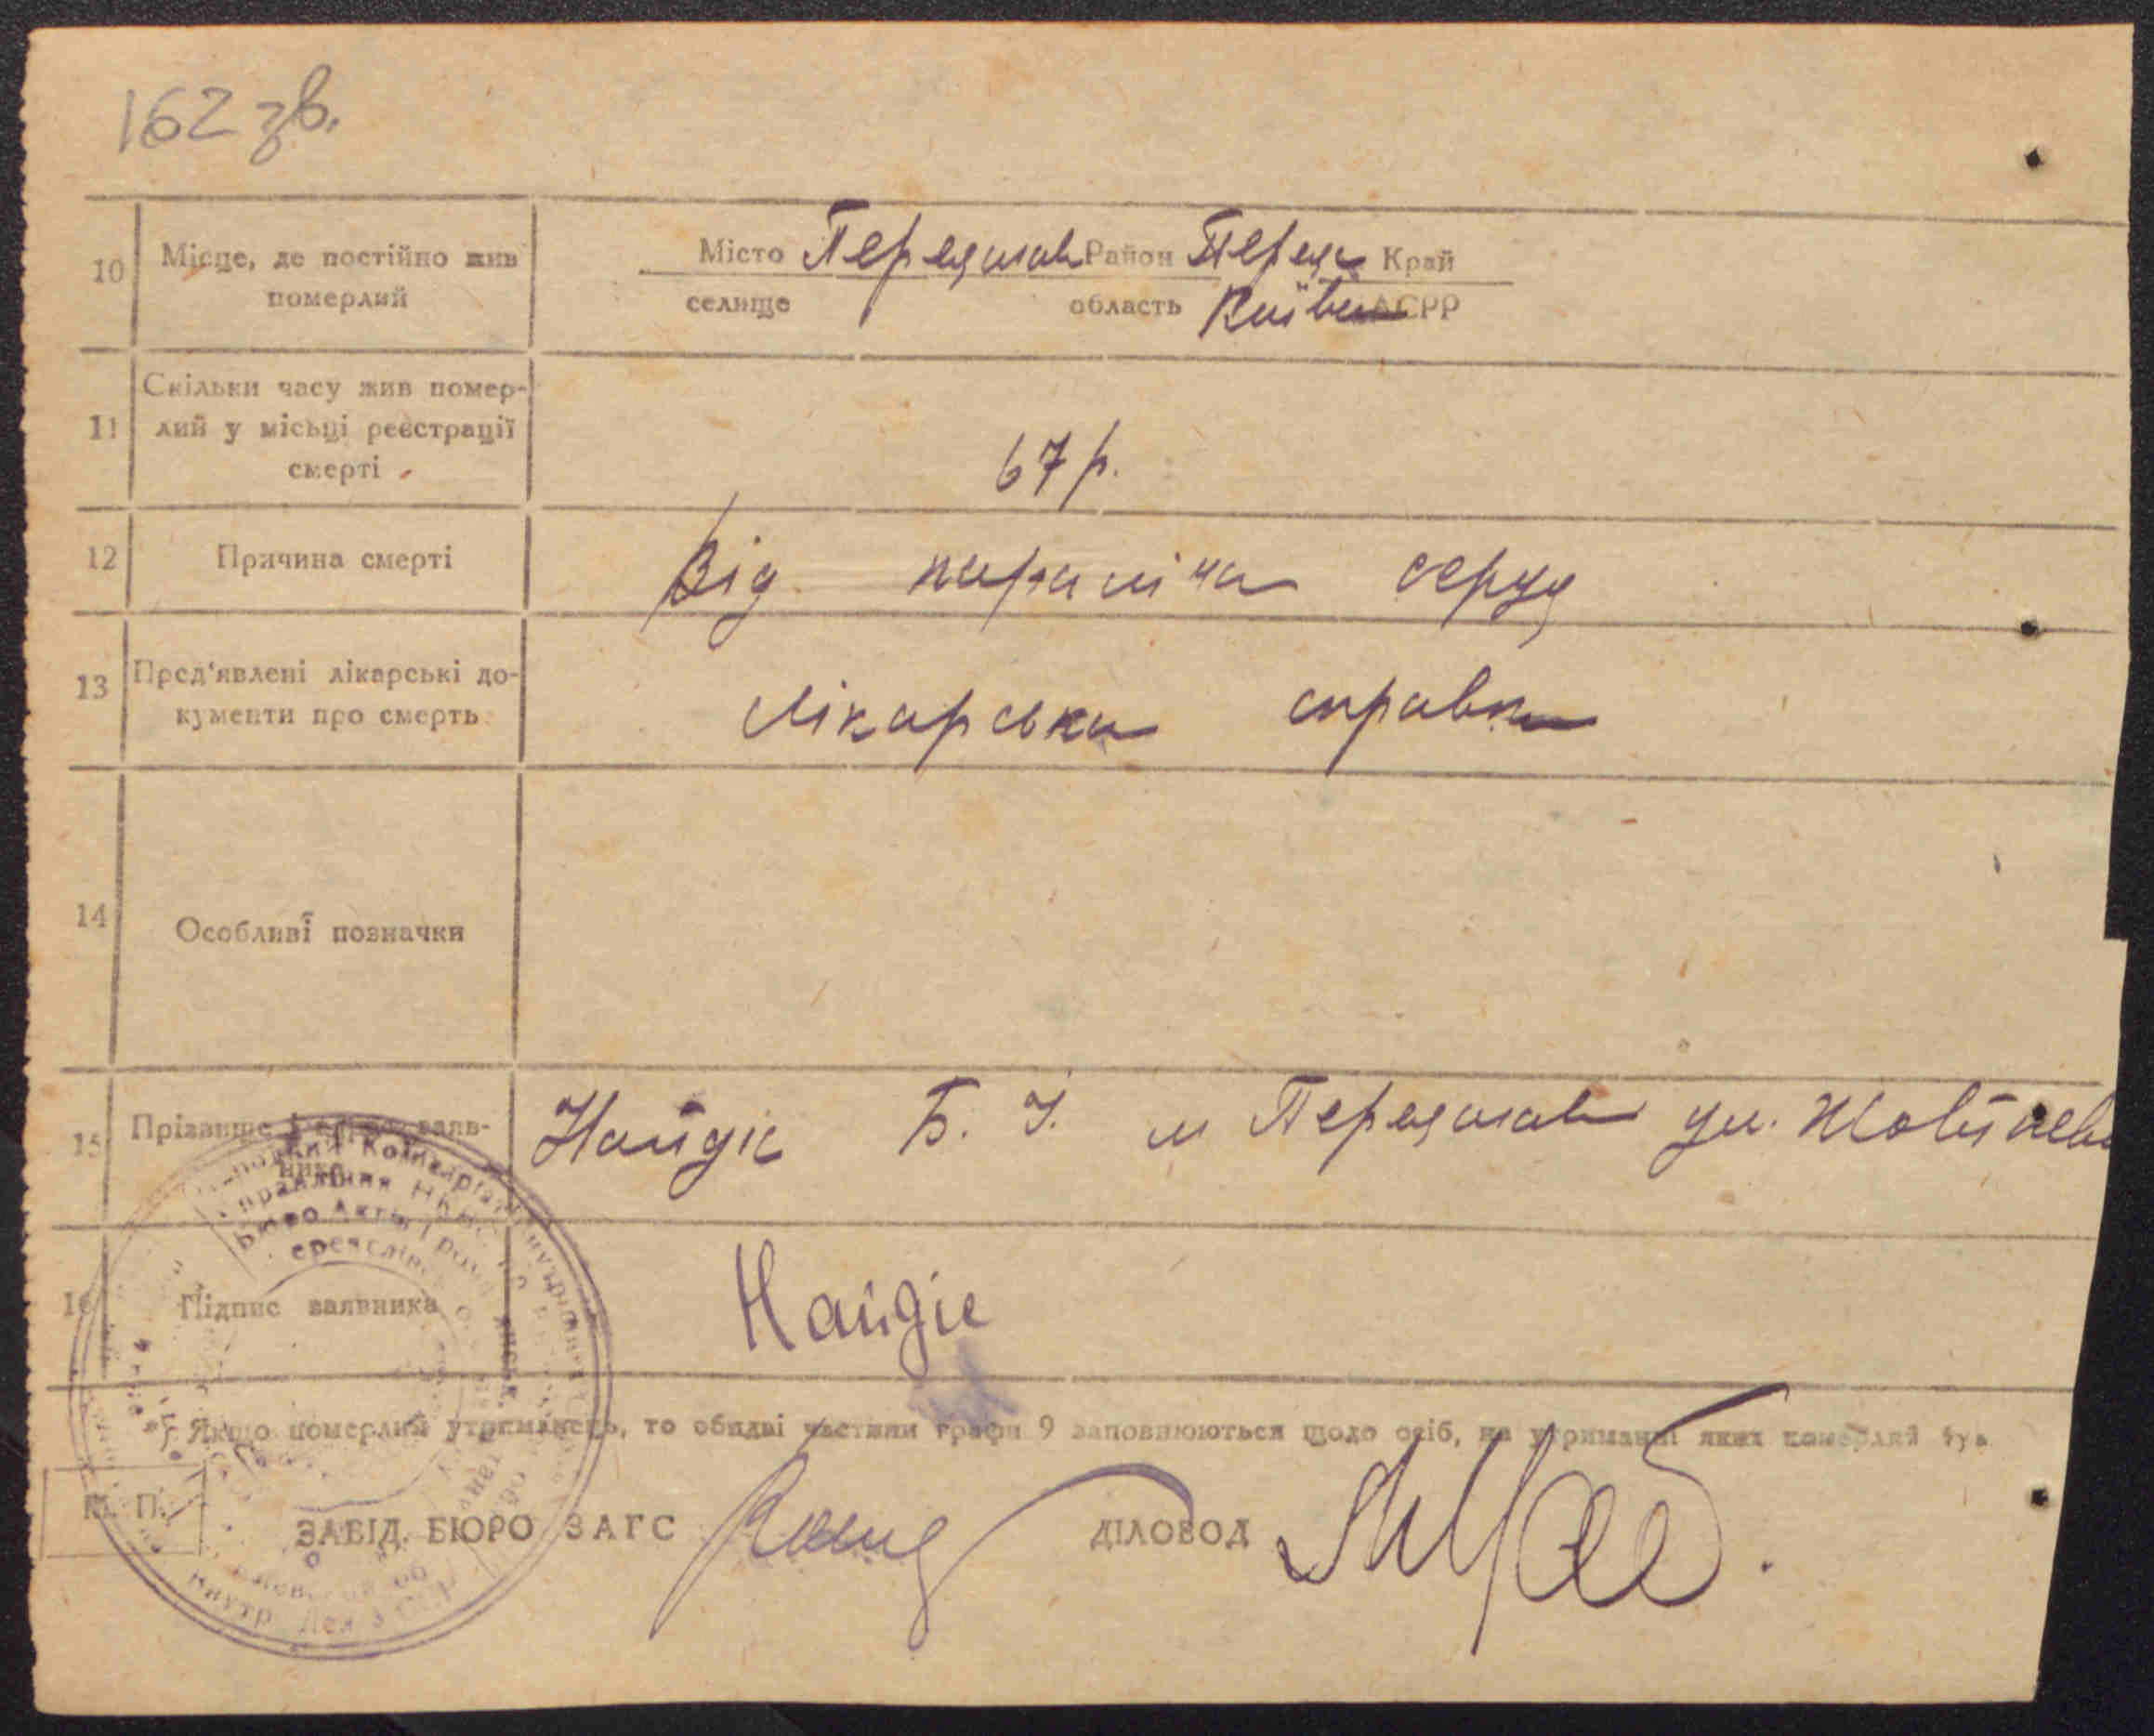 162 зв.
10 Місце, де постійно жив померлий
Місто Переяслав Район Переяс Край
селище область Київськ АСРР
11 Скільки часу жив помер-
лий у місьці реєстрації
смерті
67 р.
12 Причина смерті Від параліча серця
13 Пред'явлені лікарські до-
кументи про смерть
Лікарська справка
14 Особливі позначки
15 Прізвище заяв-
ника
Найдіс Б. І. м Переяслав ул. Жовтнева
16 Підпис заявника Найдіс
Якщо померлий утриманець, то обидві частини графи 9 заповнюються щодо осіб, на утриманні яких померлий був
М. П. ЗАВІД. БЮРО ЗАГС ДІЛОВОД